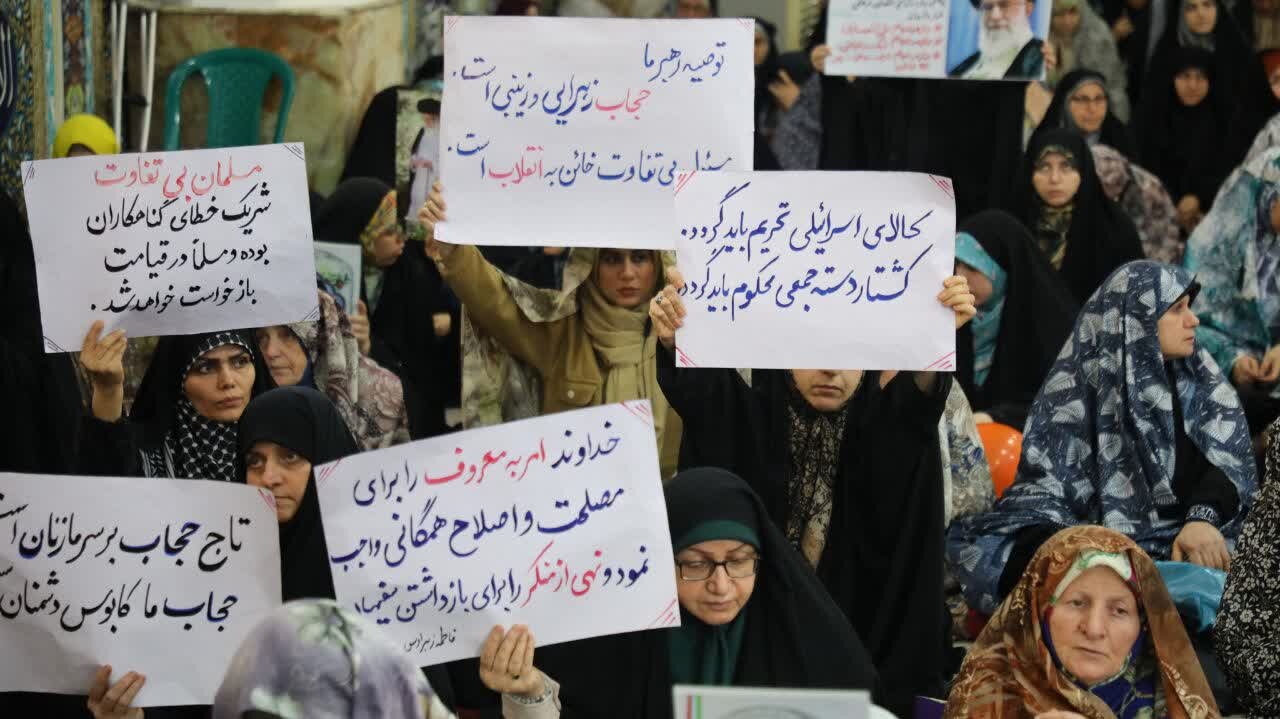 توصیه رهبر ما
حجاب زهرایی و زینبی است.
مسئول بی تفاوت خائن به انقلاب است.
مسلمان بی تفاوت
شریک خطای گناهکاران
بوده و مسلماً در قیامت
بازخواست خواهد شد.
کالای اسرائیلی تحریم باید گردد.
کشتار دسته جمعی محکوم باید گردد.
خداوند امر به معروف را برای
مصلحت و اصلاح همگانی واجب
نمود و نهی از منکر را برای بازداشتن سفیهان
فاطمه زهرا (س)
تاج حجاب بر سر ما زنان است
حجاب ما کابوس دشمنان